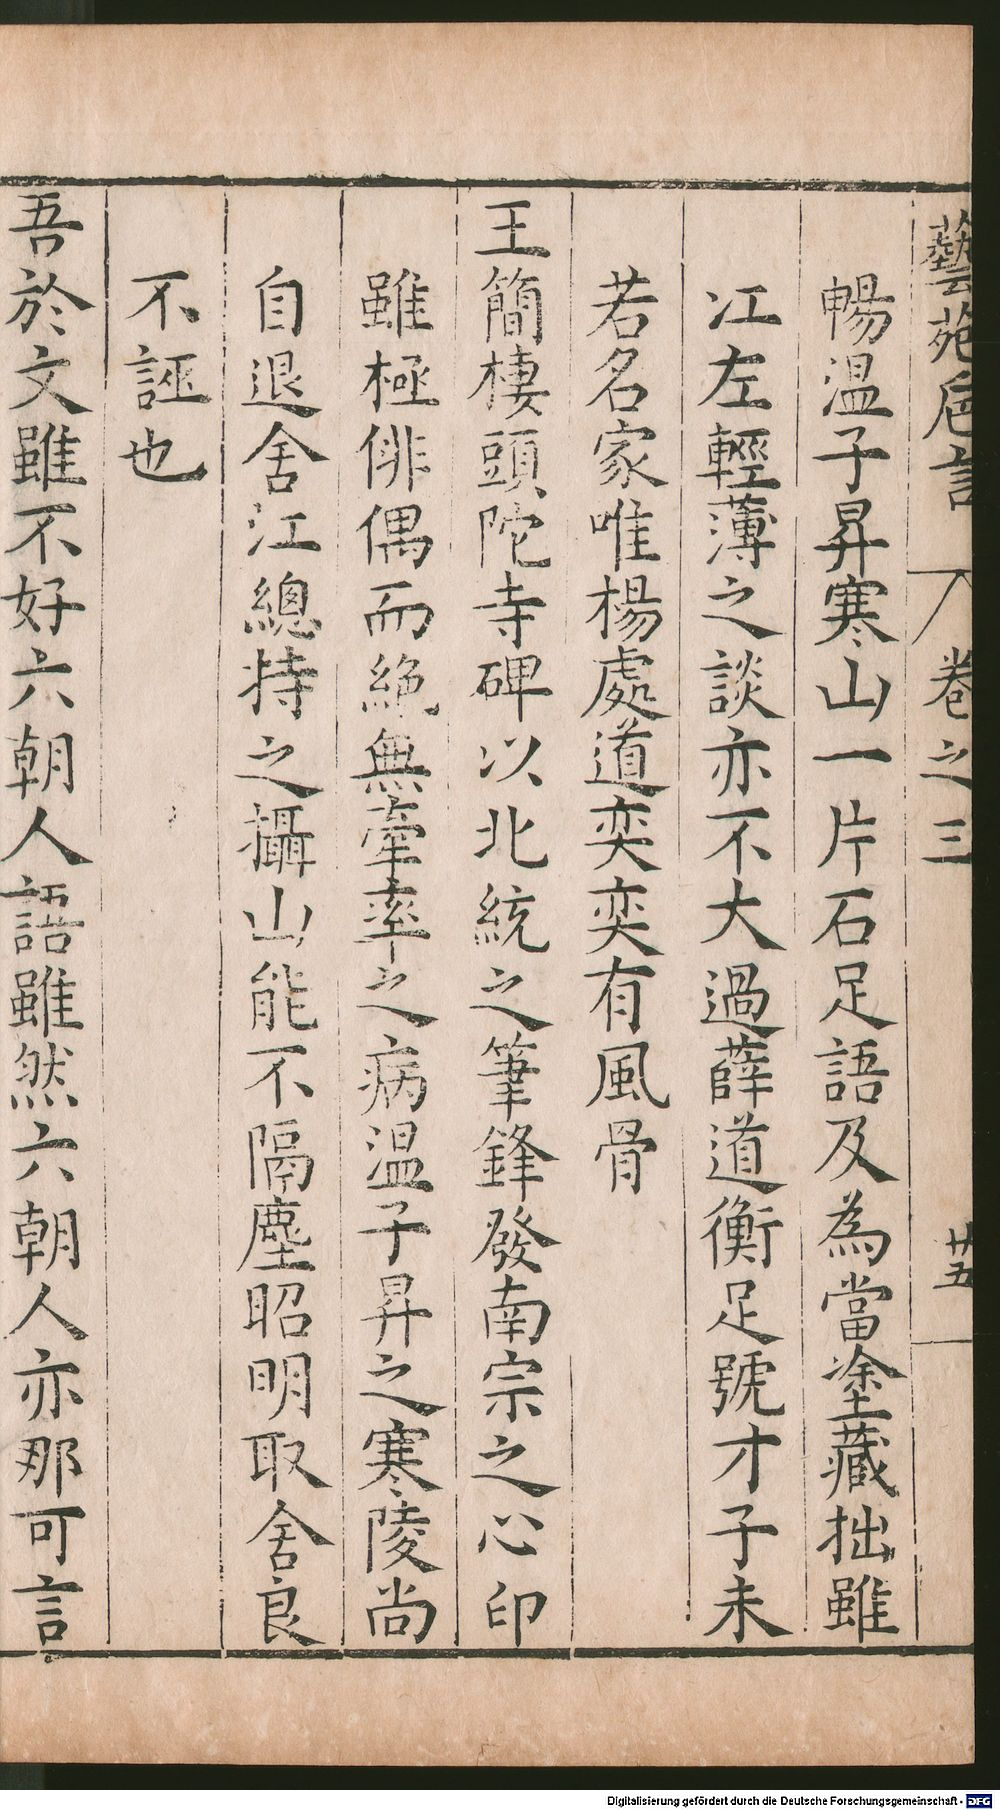 藝苑卮言 卷之三 廿五
暢溫子昇寒山一片石足語及為當塗藏拙雖
江左輕薄之談亦不大過薛道衡足號才子未
若名家唯楊處道奕奕有風骨
王簡棲頭陀寺碑以北統之筆鋒發南宗之心印
雖極俳偶而絕無牽率之病溫子昇之寒陵尚
自退舍江總持之攝山能不隔塵昭明取舍良
不誣也
吾於文雖不好六朝人語雖然六朝人亦那可言
Digitalisierung gefördert durch die Deutsche Forschungsgemeinschaft - DFG